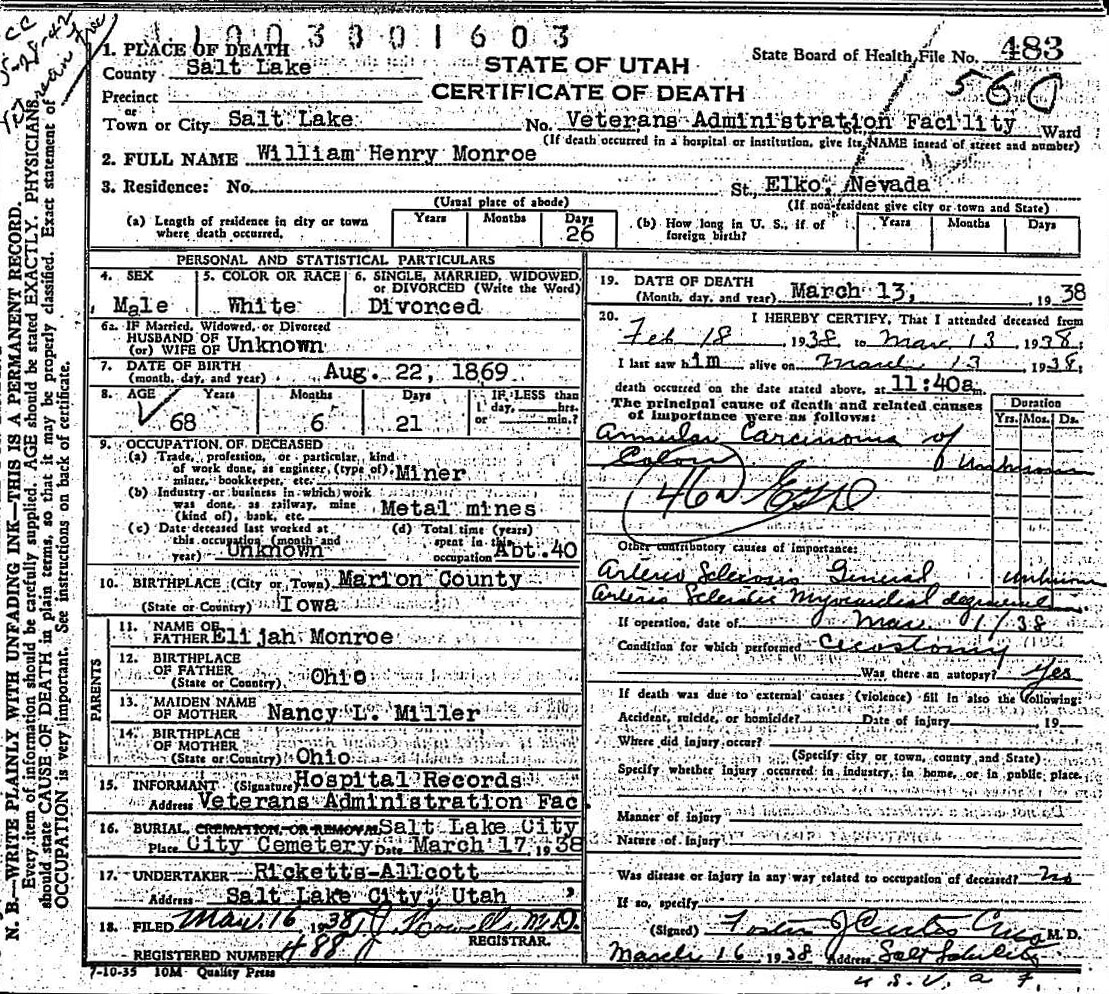 1 1 0 0 3 8 0 1 6 0 3
1. PLACE OF DEATH
County Salt Lake
Precinct
or
Town or City Salt Lake
STATE OF UTAH
CERTIFICATE OF DEATH
State Board of Health File No. 483
560
No. Veterans Administration Facility St., Ward
(If death occurred in a hospital or institution, give its NAME instead of street and number)
2. FULL NAME William Henry Monroe
3. Residence: No. St., Elko, Nevada
(Usual place of abode) (If non-resident give city or town and State)
(a) Length of residence in city or town where death occurred. Years Months Days 26
(b) How long in U. S., if of foreign birth? Years Months Days
PERSONAL AND STATISTICAL PARTICULARS
4. SEX Male
5. COLOR OR RACE White
6. SINGLE, MARRIED, WIDOWED, or DIVORCED (Write the Word) Divorced
6a. IF Married, Widowed, or Divorced
HUSBAND OF
(or) WIFE OF Unknown
7. DATE OF BIRTH
(month, day, and year) Aug. 22, 1869
8. AGE Years 68 Months 6 Days 21 IF LESS than 1 day, hrs. or min.?
9. OCCUPATION OF DECEASED
(a) Trade, profession, or particular, kind
of work done, as engineer, (type of),
miner, bookkeeper, etc. Miner
(b) Industry or business in which work
was done, as railway, mine
(kind of), bank, etc. Metal mines
(c) Date deceased last worked at
this occupation (month and
year) Unknown
(d) Total time (years)
spent in this
occupation Abt. 40
10. BIRTHPLACE (City or Town) Marion County
(State or Country) Iowa
PARENTS
11. NAME OF
FATHER Elijah Monroe
12. BIRTHPLACE
OF FATHER
(State or Country) Ohio
13. MAIDEN NAME
OF MOTHER Nancy L. Miller
14. BIRTHPLACE
OF MOTHER
(State or Country) Ohio
15. INFORMANT (Signature) Hospital Records
Address Veterans Administration Fac
16. BURIAL, CREMATION, OR REMOVAL Salt Lake City
Place City Cemetery Date March 17, 1938
17. UNDERTAKER Ricketts-Allcott
Address Salt Lake City, Utah
18. FILED Mar. 16 1938 M.D.
REGISTRAR.
REGISTERED NUMBER 488
7-10-35 10M Quality Press
19. DATE OF DEATH
(Month, day, and year) March 13, 1938
20. I HEREBY CERTIFY, That I attended deceased from
Feb 18 1938 to Mar 13 1938;
I last saw him alive on March 13 1938;
death occurred on the date stated above, at 11:40a m.
The principal cause of death and related causes
of importance were as follows:
Duration
Yrs. Mos. Ds.
Annular Carcinoma of
Colon Unknown
46
Other contributory causes of importance:
Arterio Sclerosis General unknown
Arterio Sclerotic Myocardial
If operation, date of Mar. 1/38
Condition for which performed Cecostomy
Was there an autopsy? Yes
If death was due to external causes (violence) fill in also the following:
Accident, suicide, or homicide? Date of injury 19
Where did injury occur?
(Specify city or town, county, and State)
Specify whether injury occurred in industry, in home, or in public place.
Manner of injury
Nature of injury
Was disease or injury in any way related to occupation of deceased? No
If so, specify
(Signed) Foster J Curtis M. D.
March 16 1938 Address Salt Lake City
U. S. V. A. F.
N. B.—WRITE PLAINLY WITH UNFADING INK—THIS IS A PERMANENT RECORD.
Every item of information should be carefully supplied. AGE should be stated EXACTLY. PHYSICIANS
should state CAUSE OF DEATH in plain terms, so that it may be properly classified. Exact statement of
OCCUPATION is very important. See instructions on back of certificate.